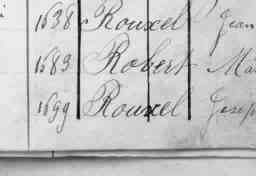 1638 Rouxel Jean
1683 Robert
1699 Rouxel